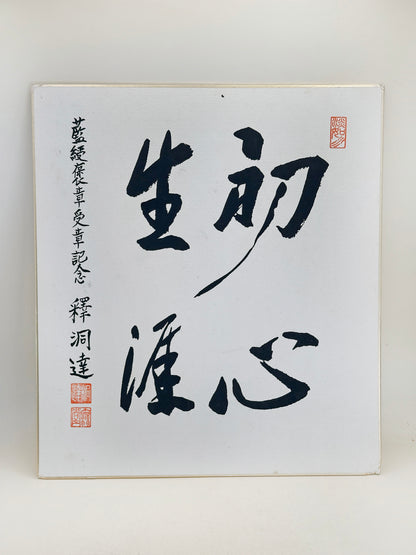 初心
生涯
藍綬褒章受章記念 釋洞達